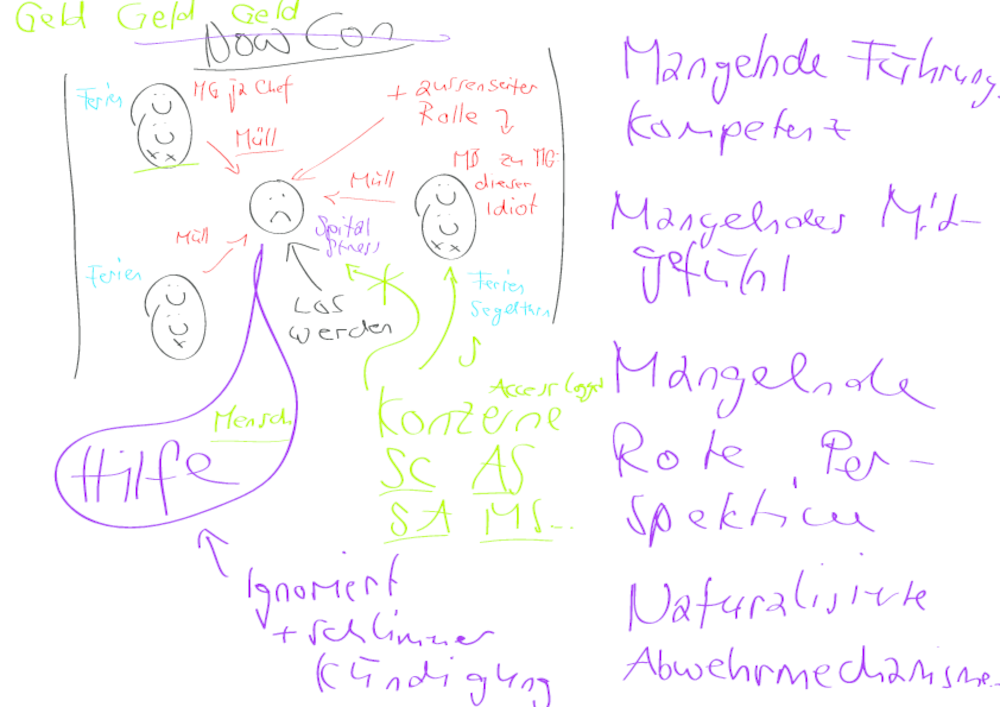 Geld Geld Geld
Now Con
Ferien
MG ja Chef
Müll
+ aussenseiter
Rolle
Müll
MD zu MG
dieser
Idiot
Müll
Spital
Stress
Ferien
Los
werden
Ferien
Segeltörn
Mensch
Hilfe
Access Logged
Konzerne
SC AS
SA MS...
Ignoriert
+ schlimmer
Kündigung
Mangelnde Führung
Kompetenz
Mangelndes Mit-
gefühl
Mangelnde
Rote Per-
spektive
Naturalisierte
Abwehrmechanisme..